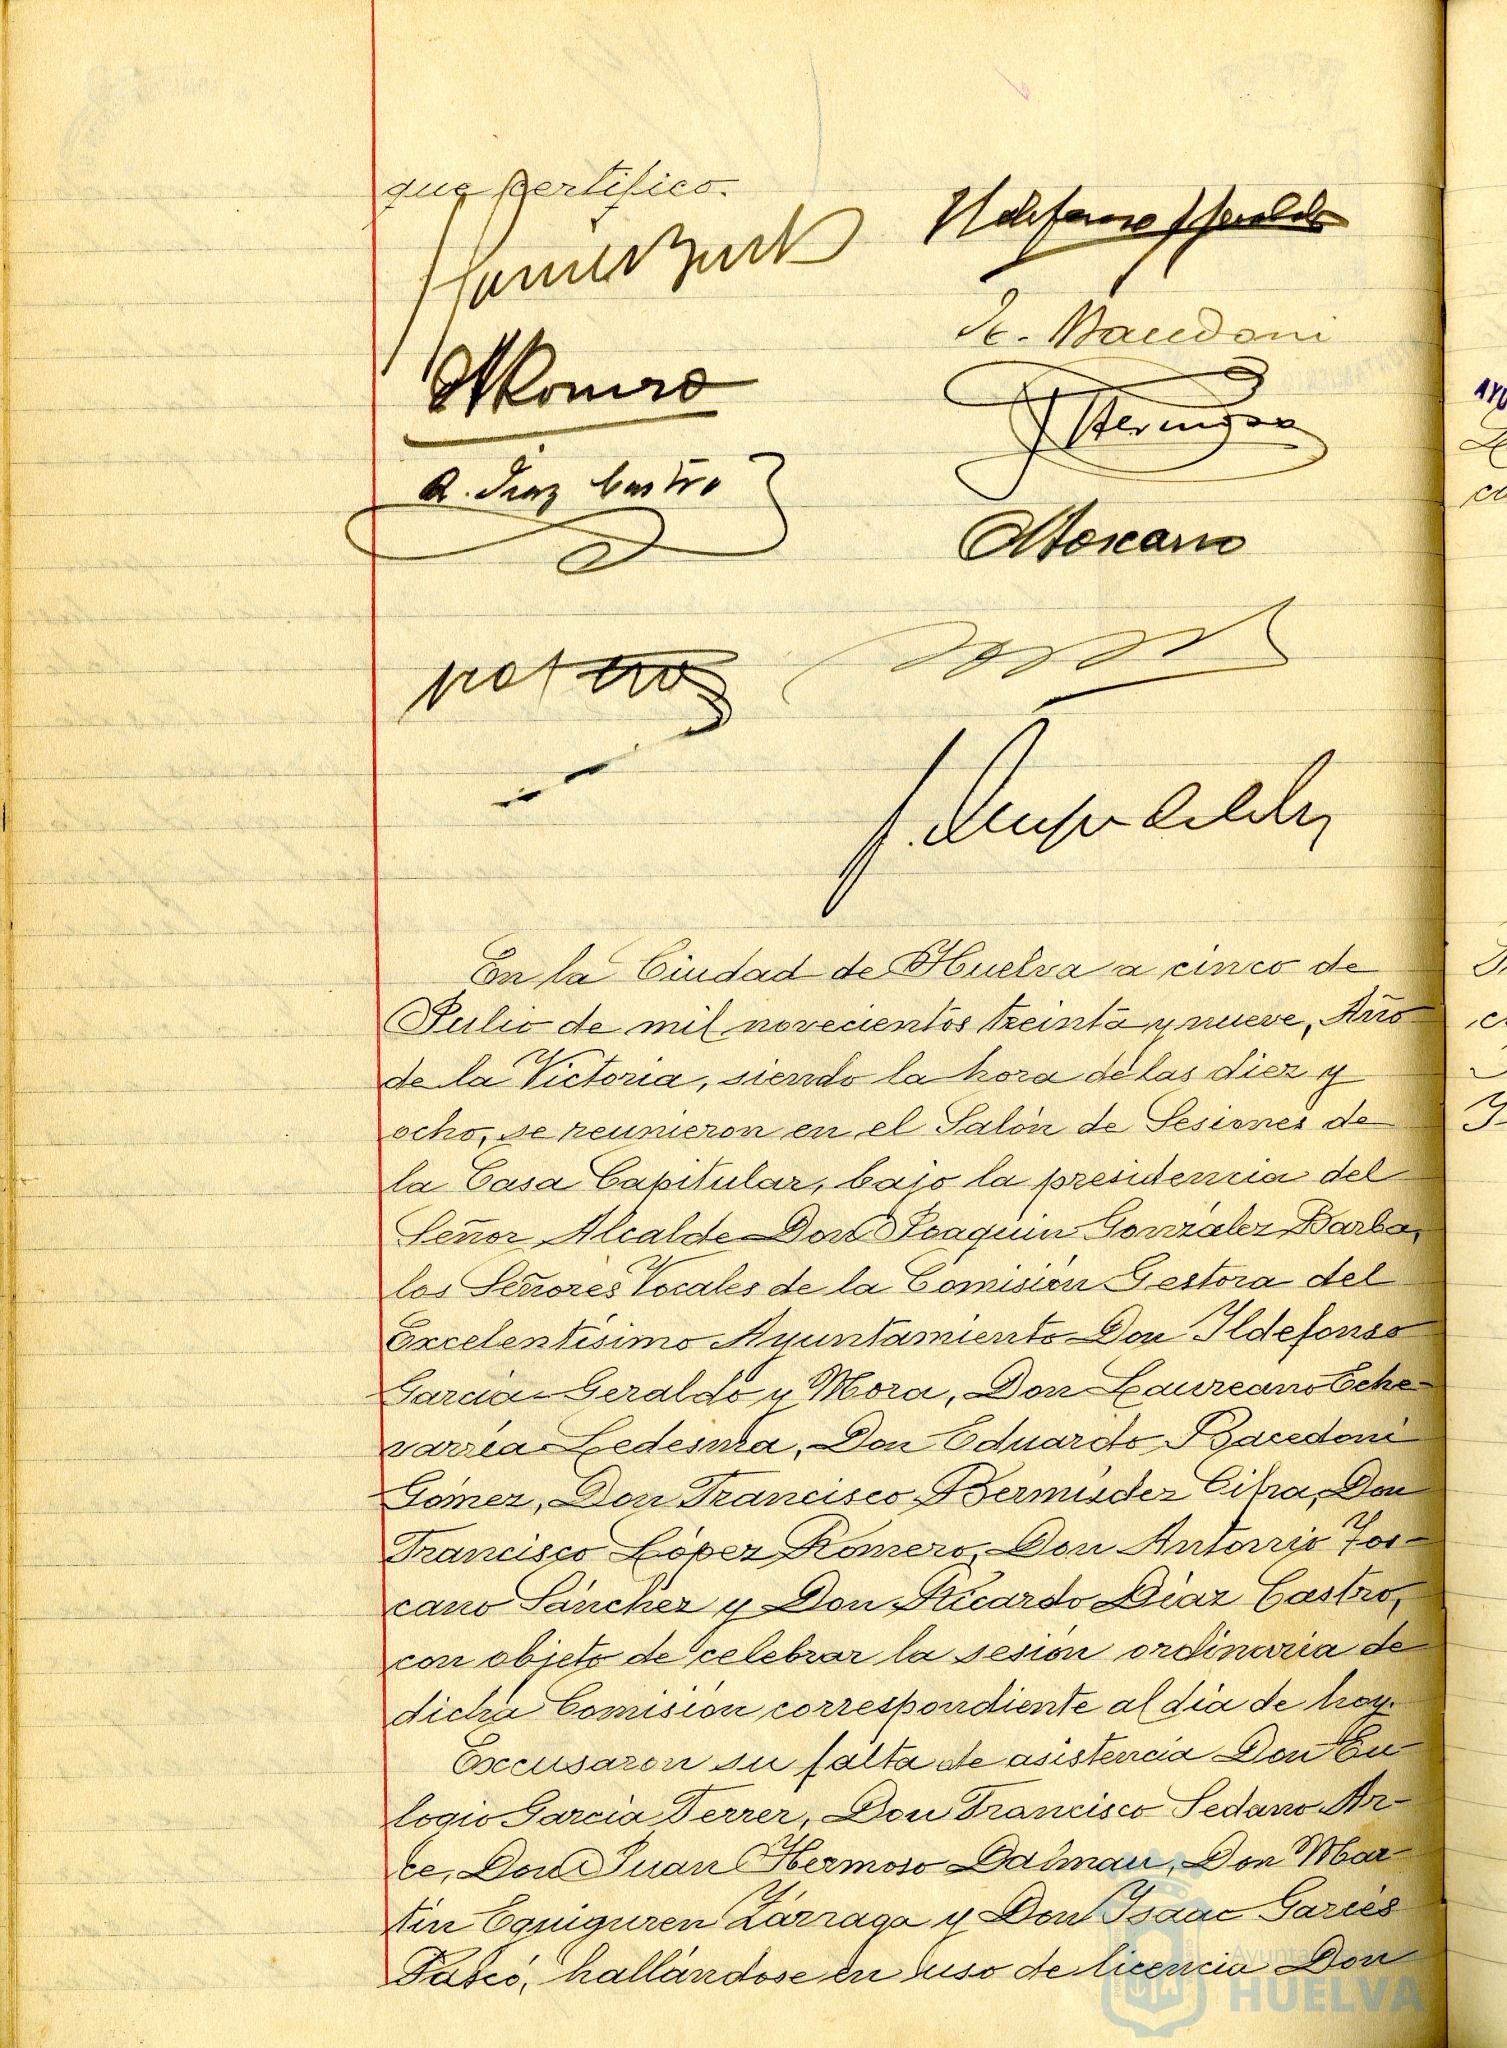 que certifico.
Ildefonso Geraldo
E. Bacedoni
Romero
J Hermoso
R. Diaz Castro
A Toscano
En la Ciudad de Huelva a cinco de
Julio de mil novecientos treinta y nueve, Año
de la Victoria, siendo la hora de las diez y
ocho, se reunieron en el Salón de Sesiones de
la Casa Capitular, bajo la presidencia del
Señor Alcalde Don Joaquin González Barba,
los Señores Vocales de la Comisión Gestora del
Excelentísimo Ayuntamiento Don Ildefonso
Garcia-Geraldo y Mora, Don Laureano Eche-
varria Ledesma, Don Eduardo Bacedoni
Gómez, Don Francisco Bermúdez Cifra, Don
Francisco López Romero, Don Antonio Tos-
cano Sánchez y Don Ricardo Díaz Castro,
con objeto de celebrar la sesión ordinaria de
dicha Comisión correspondiente al día de hoy.
Excusaron su falta de asistencia Don Eu-
logio García Ferrer, Don Francisco Sedano Ar-
ce, Don Juan Hermoso Dalmau, Don Mar-
tín Eguiguren Zárraga y Don Isaac Garcés
hallándose en uso de licencia Don
Ayunta
HUELVA